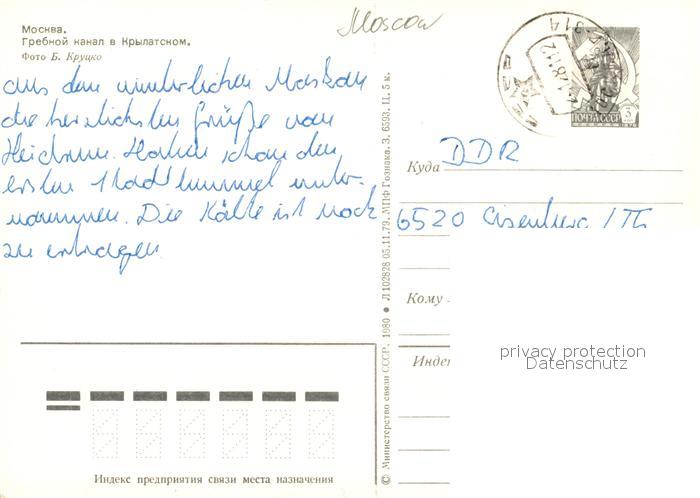 Москва.
Гребной канал в Крылатском.
Фото Б. Круцко
Moscow
aus dem winterlichen Moskau
die herzlichsten Grüße von
Haben schon den
ersten Stadtbummel unter-
nommen. Die Kälte ist noch
zu ertragen
ПОЧТА СССР
Куда DDR
6520 Eisenberg / Th
Кому
Индекс предприятия связи места назначения
© Министерство связи СССР. 1980 ● Л 102828 05.11.79. МПФ Гознака. З. 6593. Ц. 5 к.
privacy protection
Datenschutz